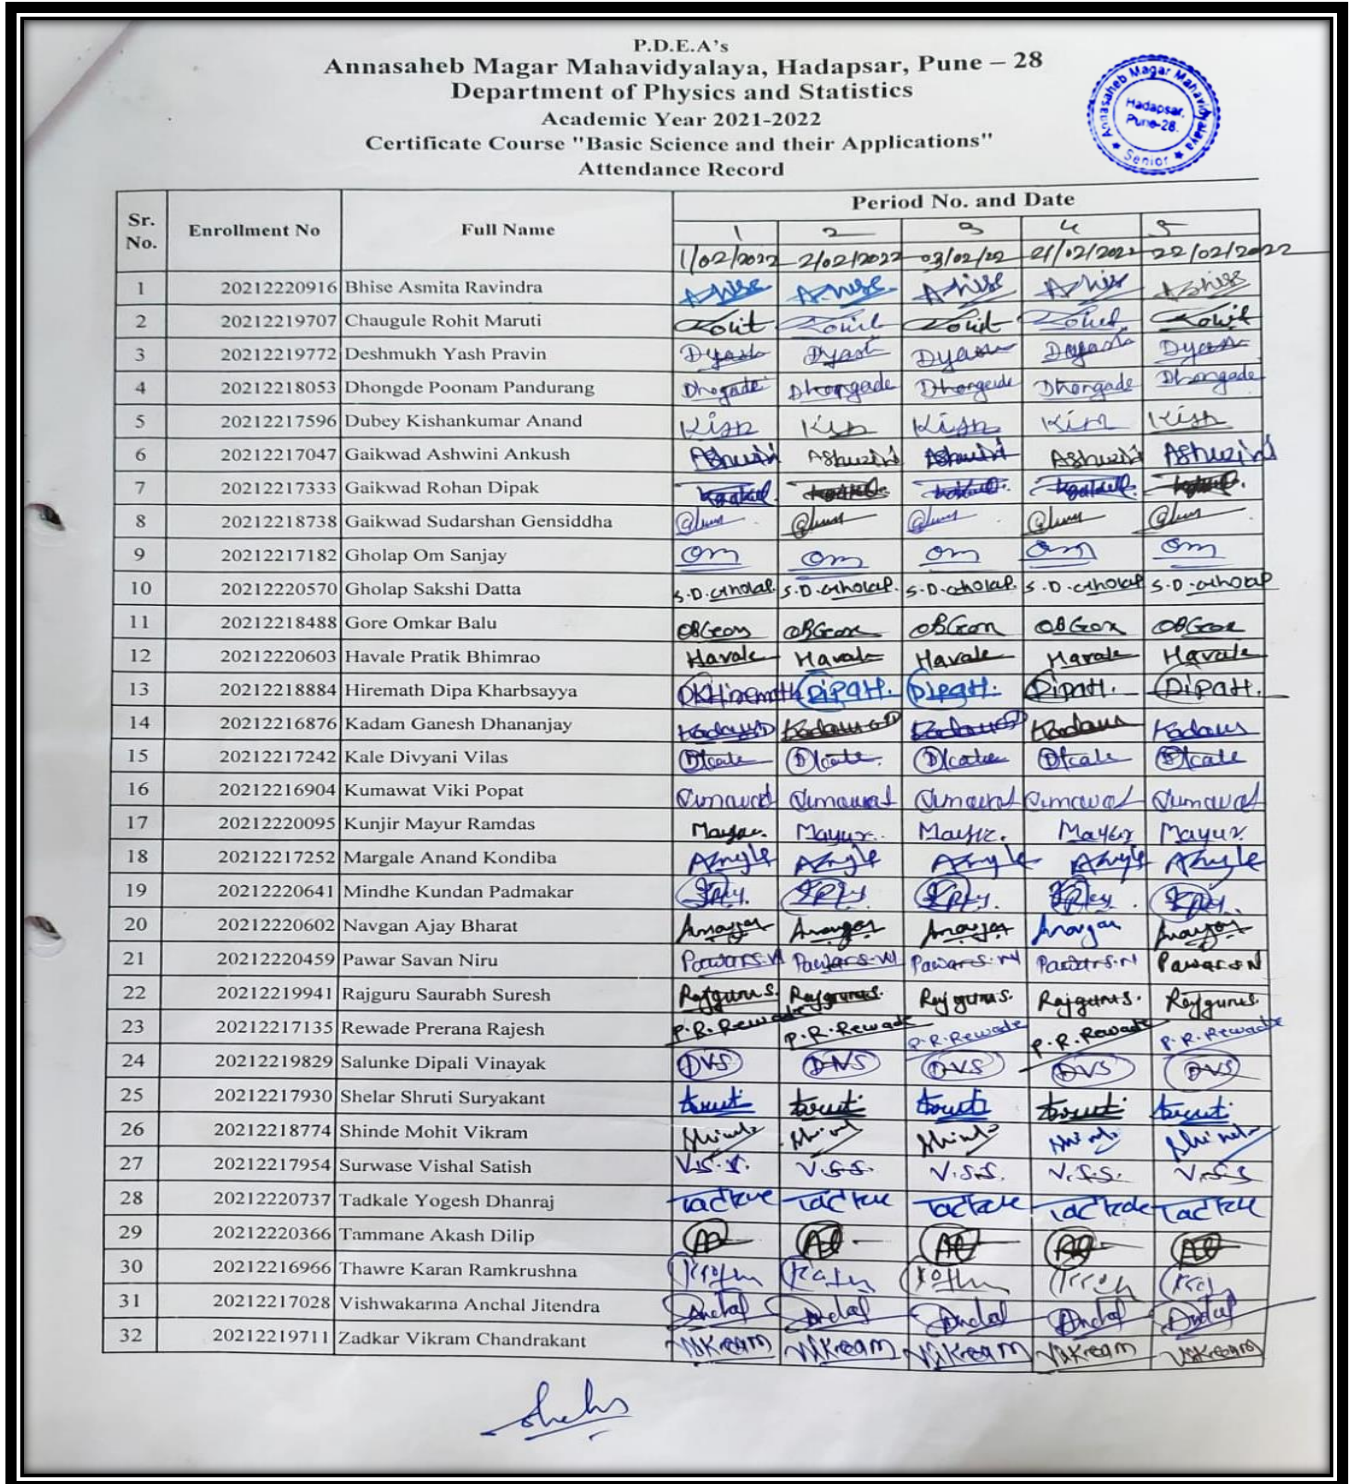 P.D.E.A's
Annasaheb Magar Mahavidyalaya, Hadapsar, Pune – 28
Department of Physics and Statistics
Academic Year 2021-2022
Certificate Course "Basic Science and their Applications"
Attendance Record
Annasaheb Magar Mahavidyalaya
Hadapsar,
Pune-28.
★ Senior ★
Sr. No. Enrollment No Full Name Period No. and Date
1 2 3 4 5
1/02/2022 2/02/2022 03/02/22 21/02/2022 22/02/2022
1 20212220916 Bhise Asmita Ravindra
2 20212219707 Chaugule Rohit Maruti
3 20212219772 Deshmukh Yash Pravin Dyash Dyash Dyash Dyash Dyash
4 20212218053 Dhongde Poonam Pandurang Dhogade Dhongade Dhongade Dhongade Dhongade
5 20212217596 Dubey Kishankumar Anand
6 20212217047 Gaikwad Ashwini Ankush Ashwini Ashwini Ashwini Ashwini Ashwini
7 20212217333 Gaikwad Rohan Dipak
8 20212218738 Gaikwad Sudarshan Gensiddha
9 20212217182 Gholap Om Sanjay Om Om Om Om Om
10 20212220570 Gholap Sakshi Datta S.D.Gholap. S.D.Gholap. S.D.Gholap. S.D.Gholap S.D.Gholap
11 20212218488 Gore Omkar Balu
12 20212220603 Havale Pratik Bhimrao Havale Havale Havale Havale Havale
13 20212218884 Hiremath Dipa Kharbsayya DKHiremath DipaH. DipaH. DipaH. DipaH.
14 20212216876 Kadam Ganesh Dhananjay
15 20212217242 Kale Divyani Vilas Dkale Dkale. Dkale Dkale Dkale
16 20212216904 Kumawat Viki Popat
17 20212220095 Kunjir Mayur Ramdas Mayur. Mayur. Mayur. Mayur Mayur
18 20212217252 Margale Anand Kondiba
19 20212220641 Mindhe Kundan Padmakar
20 20212220602 Navgan Ajay Bharat
21 20212220459 Pawar Savan Niru Pawar S.N Pawar S.N Pawar S.N Pawar S.N Pawar S N
22 20212219941 Rajguru Saurabh Suresh Rajguru S. Rajguru S. Rajguru S. Rajguru S. Rajguru S.
23 20212217135 Rewade Prerana Rajesh P.R.Rewade P.R.Rewade P.R.Rewade P.R.Rewade P.R.Rewade
24 20212219829 Salunke Dipali Vinayak DVS DVS DVS DVS DVS
25 20212217930 Shelar Shruti Suryakant
26 20212218774 Shinde Mohit Vikram
27 20212217954 Surwase Vishal Satish V.S.S. V.S.S. V.S.S. V.S.S. V.S.S
28 20212220737 Tadkale Yogesh Dhanraj
29 20212220366 Tammane Akash Dilip
30 20212216966 Thawre Karan Ramkrushna
31 20212217028 Vishwakarma Anchal Jitendra
32 20212219711 Zadkar Vikram Chandrakant Vikram Vikram Vikram Vikram Vikram